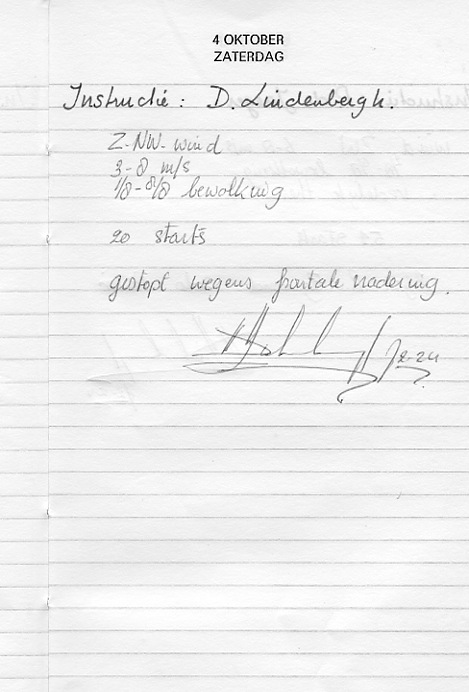 4 OKTOBER
ZATERDAG
Instructie: D. Lindenbergh.
Z-NW-wind
3-8 m/s
1/8-8/8 bewolking
20 starts
gestopt wegens frontale nadering.